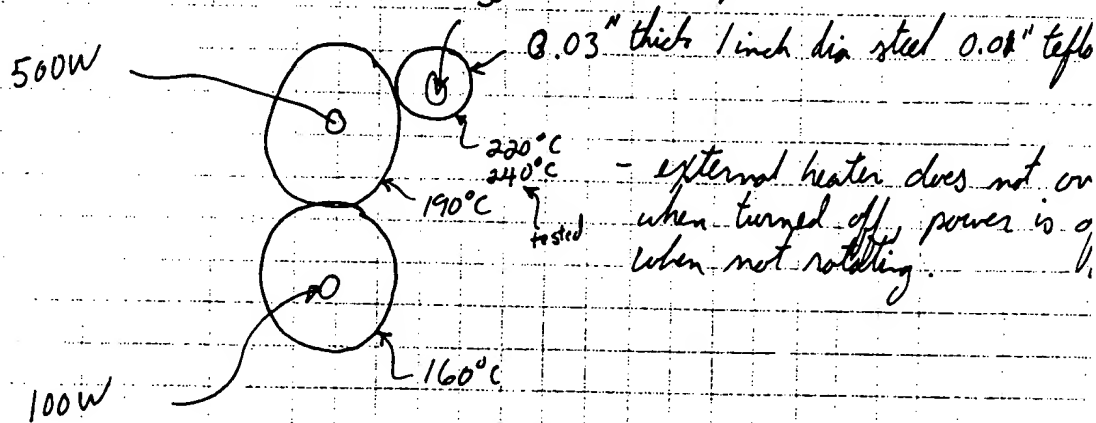 0.03" thick 1 inch dia steel 0.01" teflo
500W
220°C
240°C
tested
190°C
- external heater does not ov
when turned off, power is o
when not rotating.
160°C
100W